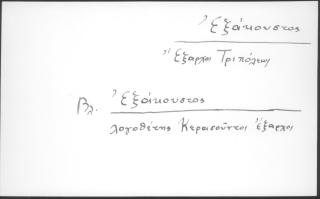 Ἐξάκουστος
Ἔξαρχοι Τριπόλεως
Βλ. Ἐξάκουστος
λογοθέτης Κερασοῦντος ἔξαρχοι